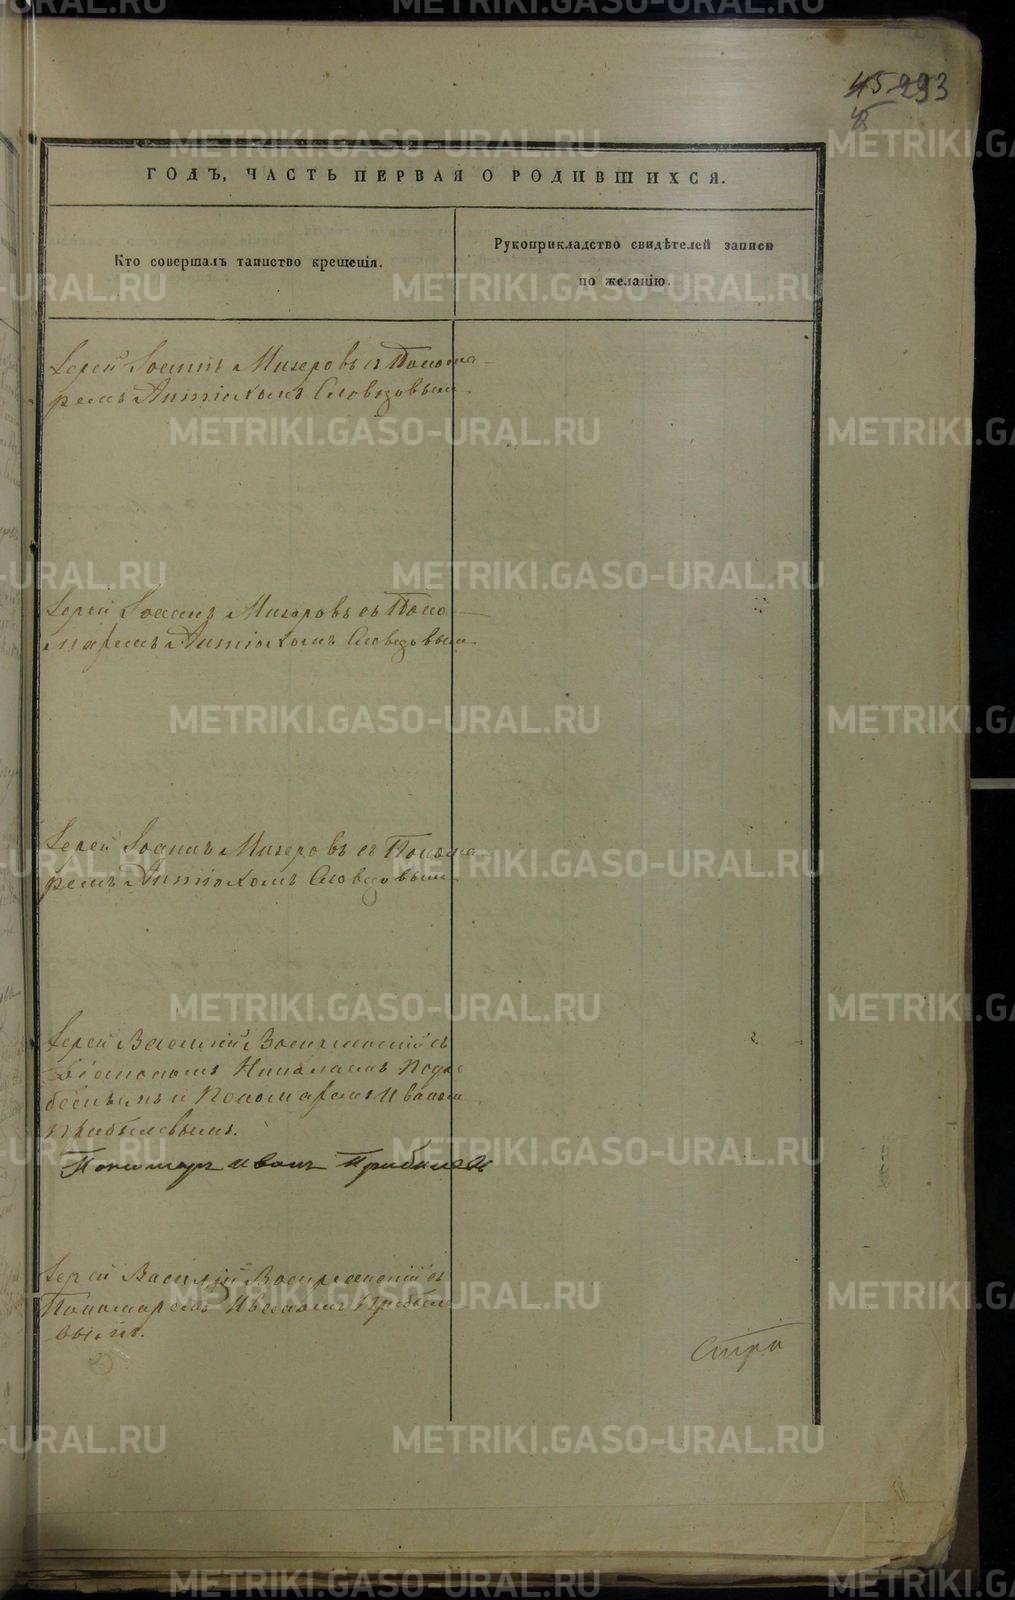 45 293
ГОДЪ, ЧАСТЬ ПЕРВАЯ О РОДИВШИХСЯ.
Кто совершалъ таинство крещенія.
Рукоприкладство свидѣтелей записи
по желанію.
Іерей Іоаннъ Мизеровъ съ Понома-
ремъ Антіохомъ Словцовымъ
Іерей Іоаннъ Мизеровъ съ Поно-
маремъ Антіохомъ Словцовымъ
Іерей Іоаннъ Мизеровъ съ Понома-
ремъ Антіохомъ Словцовымъ
Іерей Василій Воскресенскій съ
Діакономъ Николаемъ
и Пономаремъ Иваномъ
Прибылевымъ.
Пономарь Иванъ Прибылевъ
Іерей Василій Воскресенскій съ
Пономаремъ Иваномъ Прибыле
вымъ.
METRIKI.GASO-URAL.RU